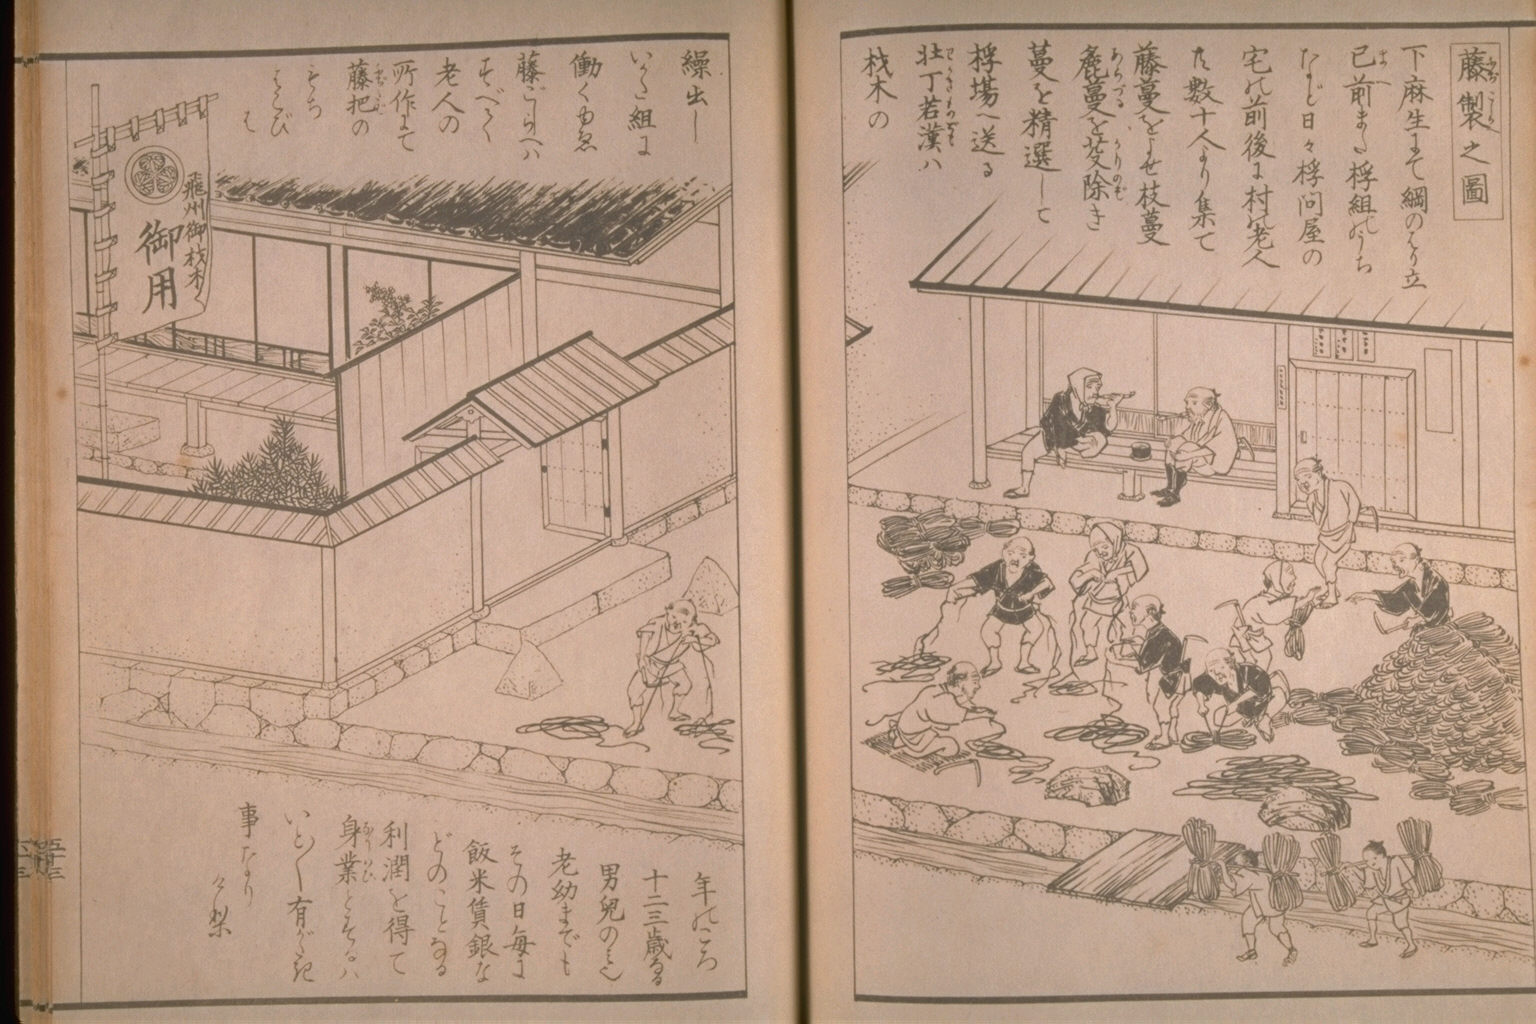 藤製之圖
下麻生まて綱のはり立
已前また桴組のうち
なと日々桴問屋の
宅の前後に村老人
大数十人より集て
藤蔓をよせ枝蔓
麁蔓を芟除き
蔓を精選して
桴場へ送る
壮丁若漢ハ
枝木の
繰出し
いかた組に
働くゆゑ
藤こしらへハ
すへて
老人の
所作まて
藤把の
もち
はこび
は
年のころ
十二三歳なる
男兒のみ
老幼までも
その日毎に
飯米賃銀な
どのことなる
利潤を得て
身業とするハ
いと有がたき
事なり
飛州御枝木
御用